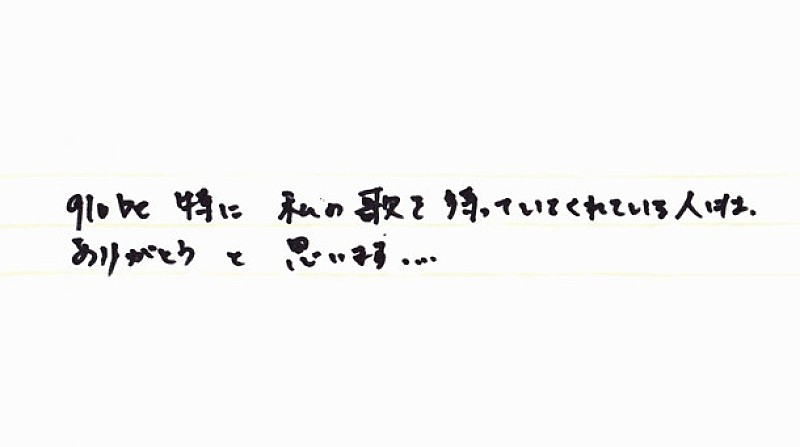 globe 特に 私の歌を待っていてくれている人には、
ありがとう と 思います....